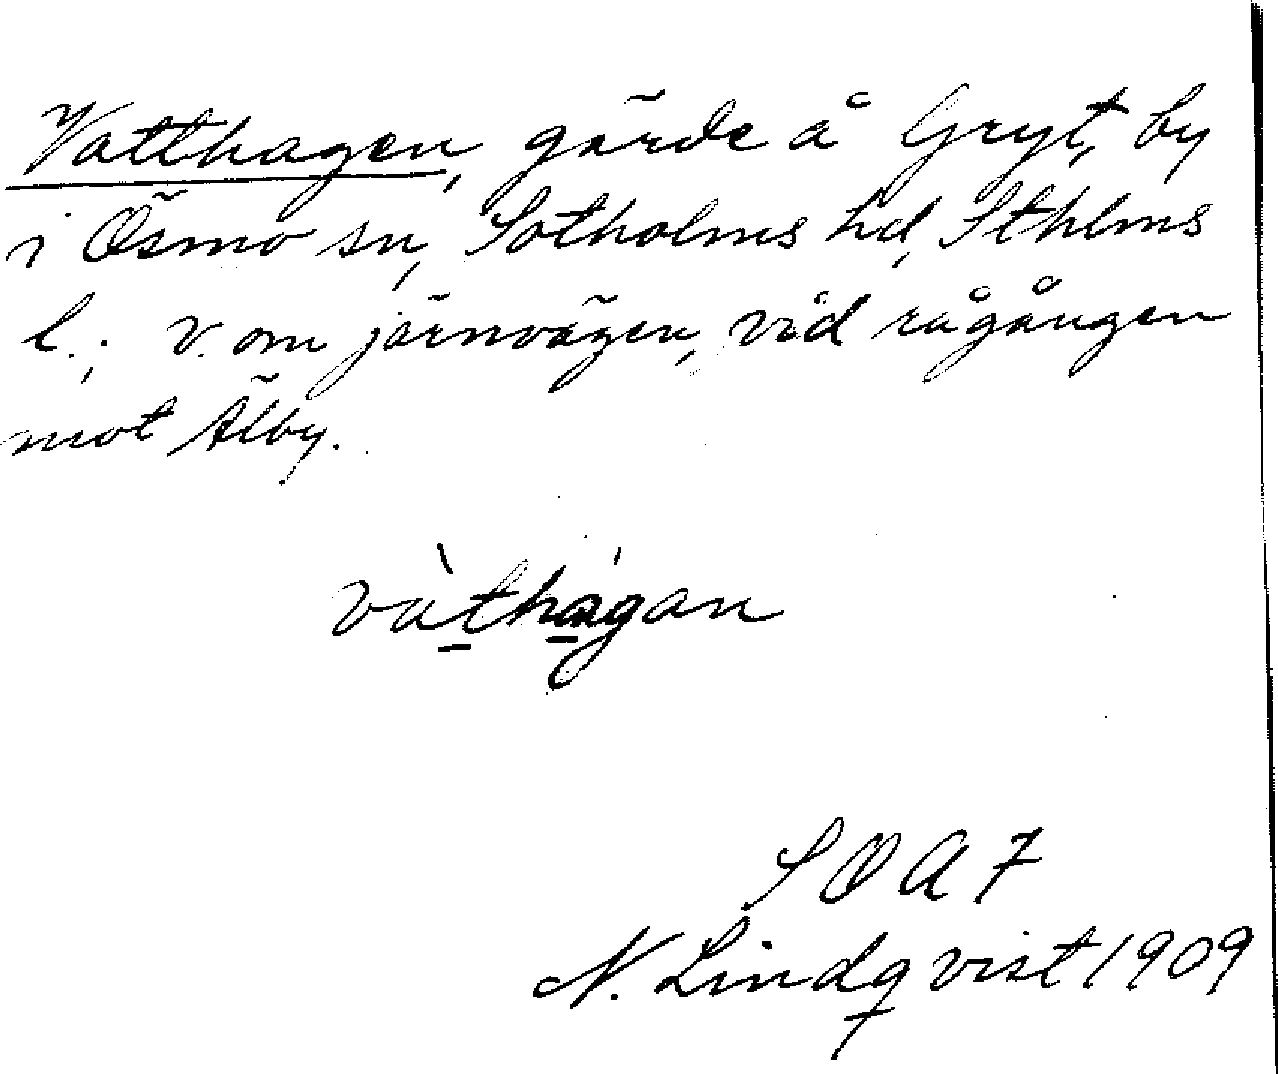 Vatthagen, gärde å Gryt, by
i Ösmo sn, Sotholms hd, Sthlms
l.; v. om järnvägen, vid rågången
mot Älby.
vàthágan
SOA 7
N. Lindqvist 1909